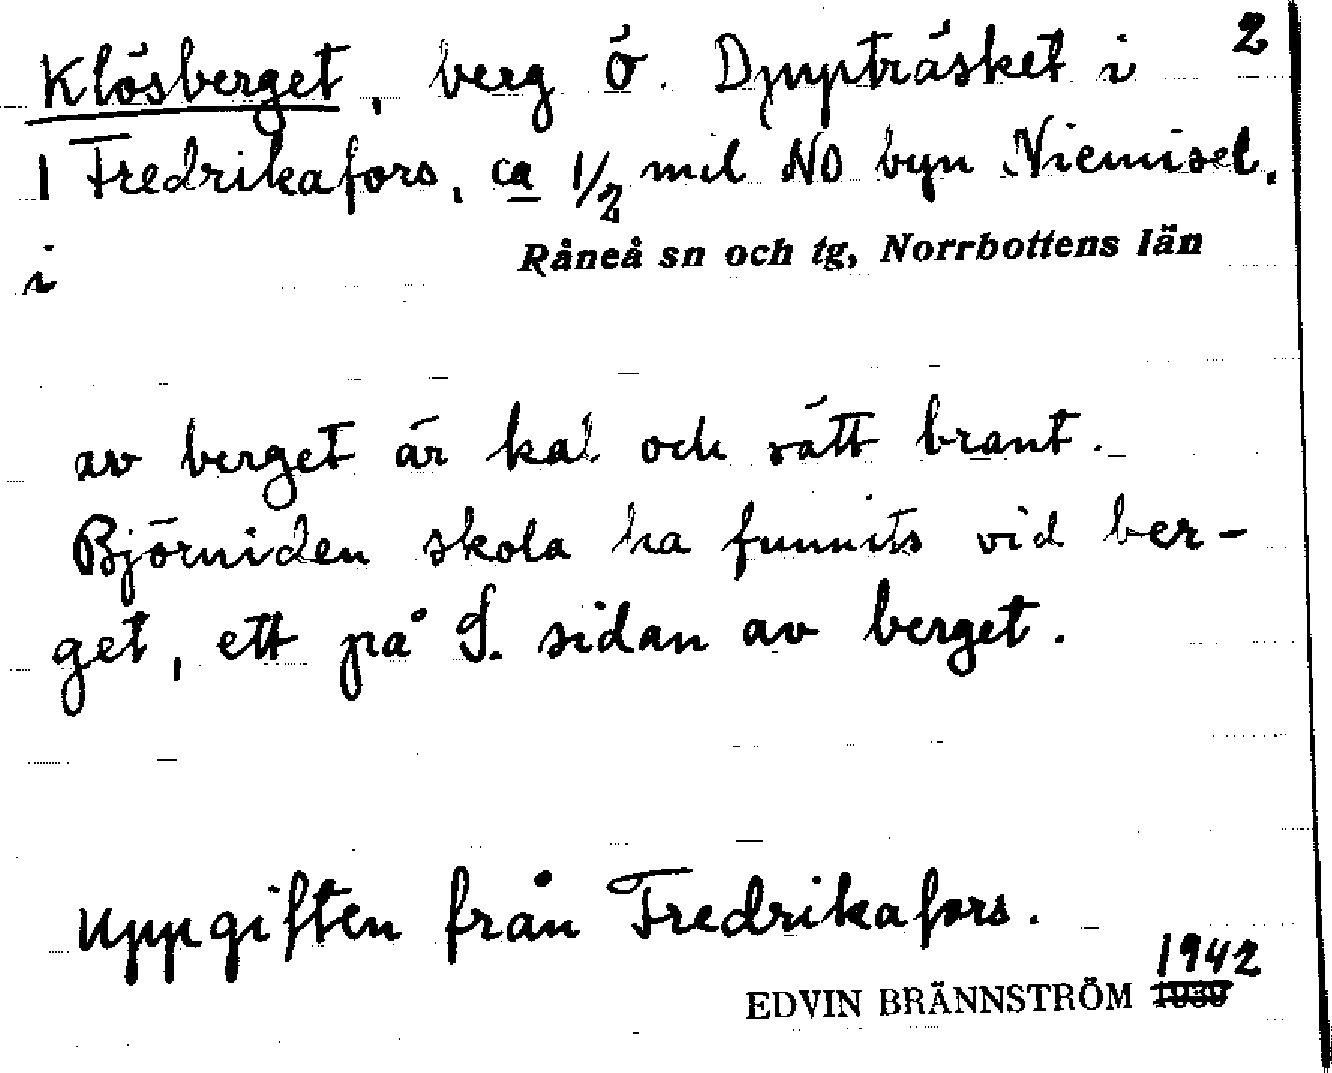 2
Klösberget, berg Ö. Djupträsket i
I Fredrikafors, ca 1/2 mil NO byn Niemisel.
i Råneå sn och tg, Norrbottens län
av berget är kal och rätt brant.
Björniden skola ha funnits vid ber-
get, ett på S. sidan av berget.
Uppgiften från Fredrikafors.
1942
EDVIN BRÄNNSTRÖM 1939